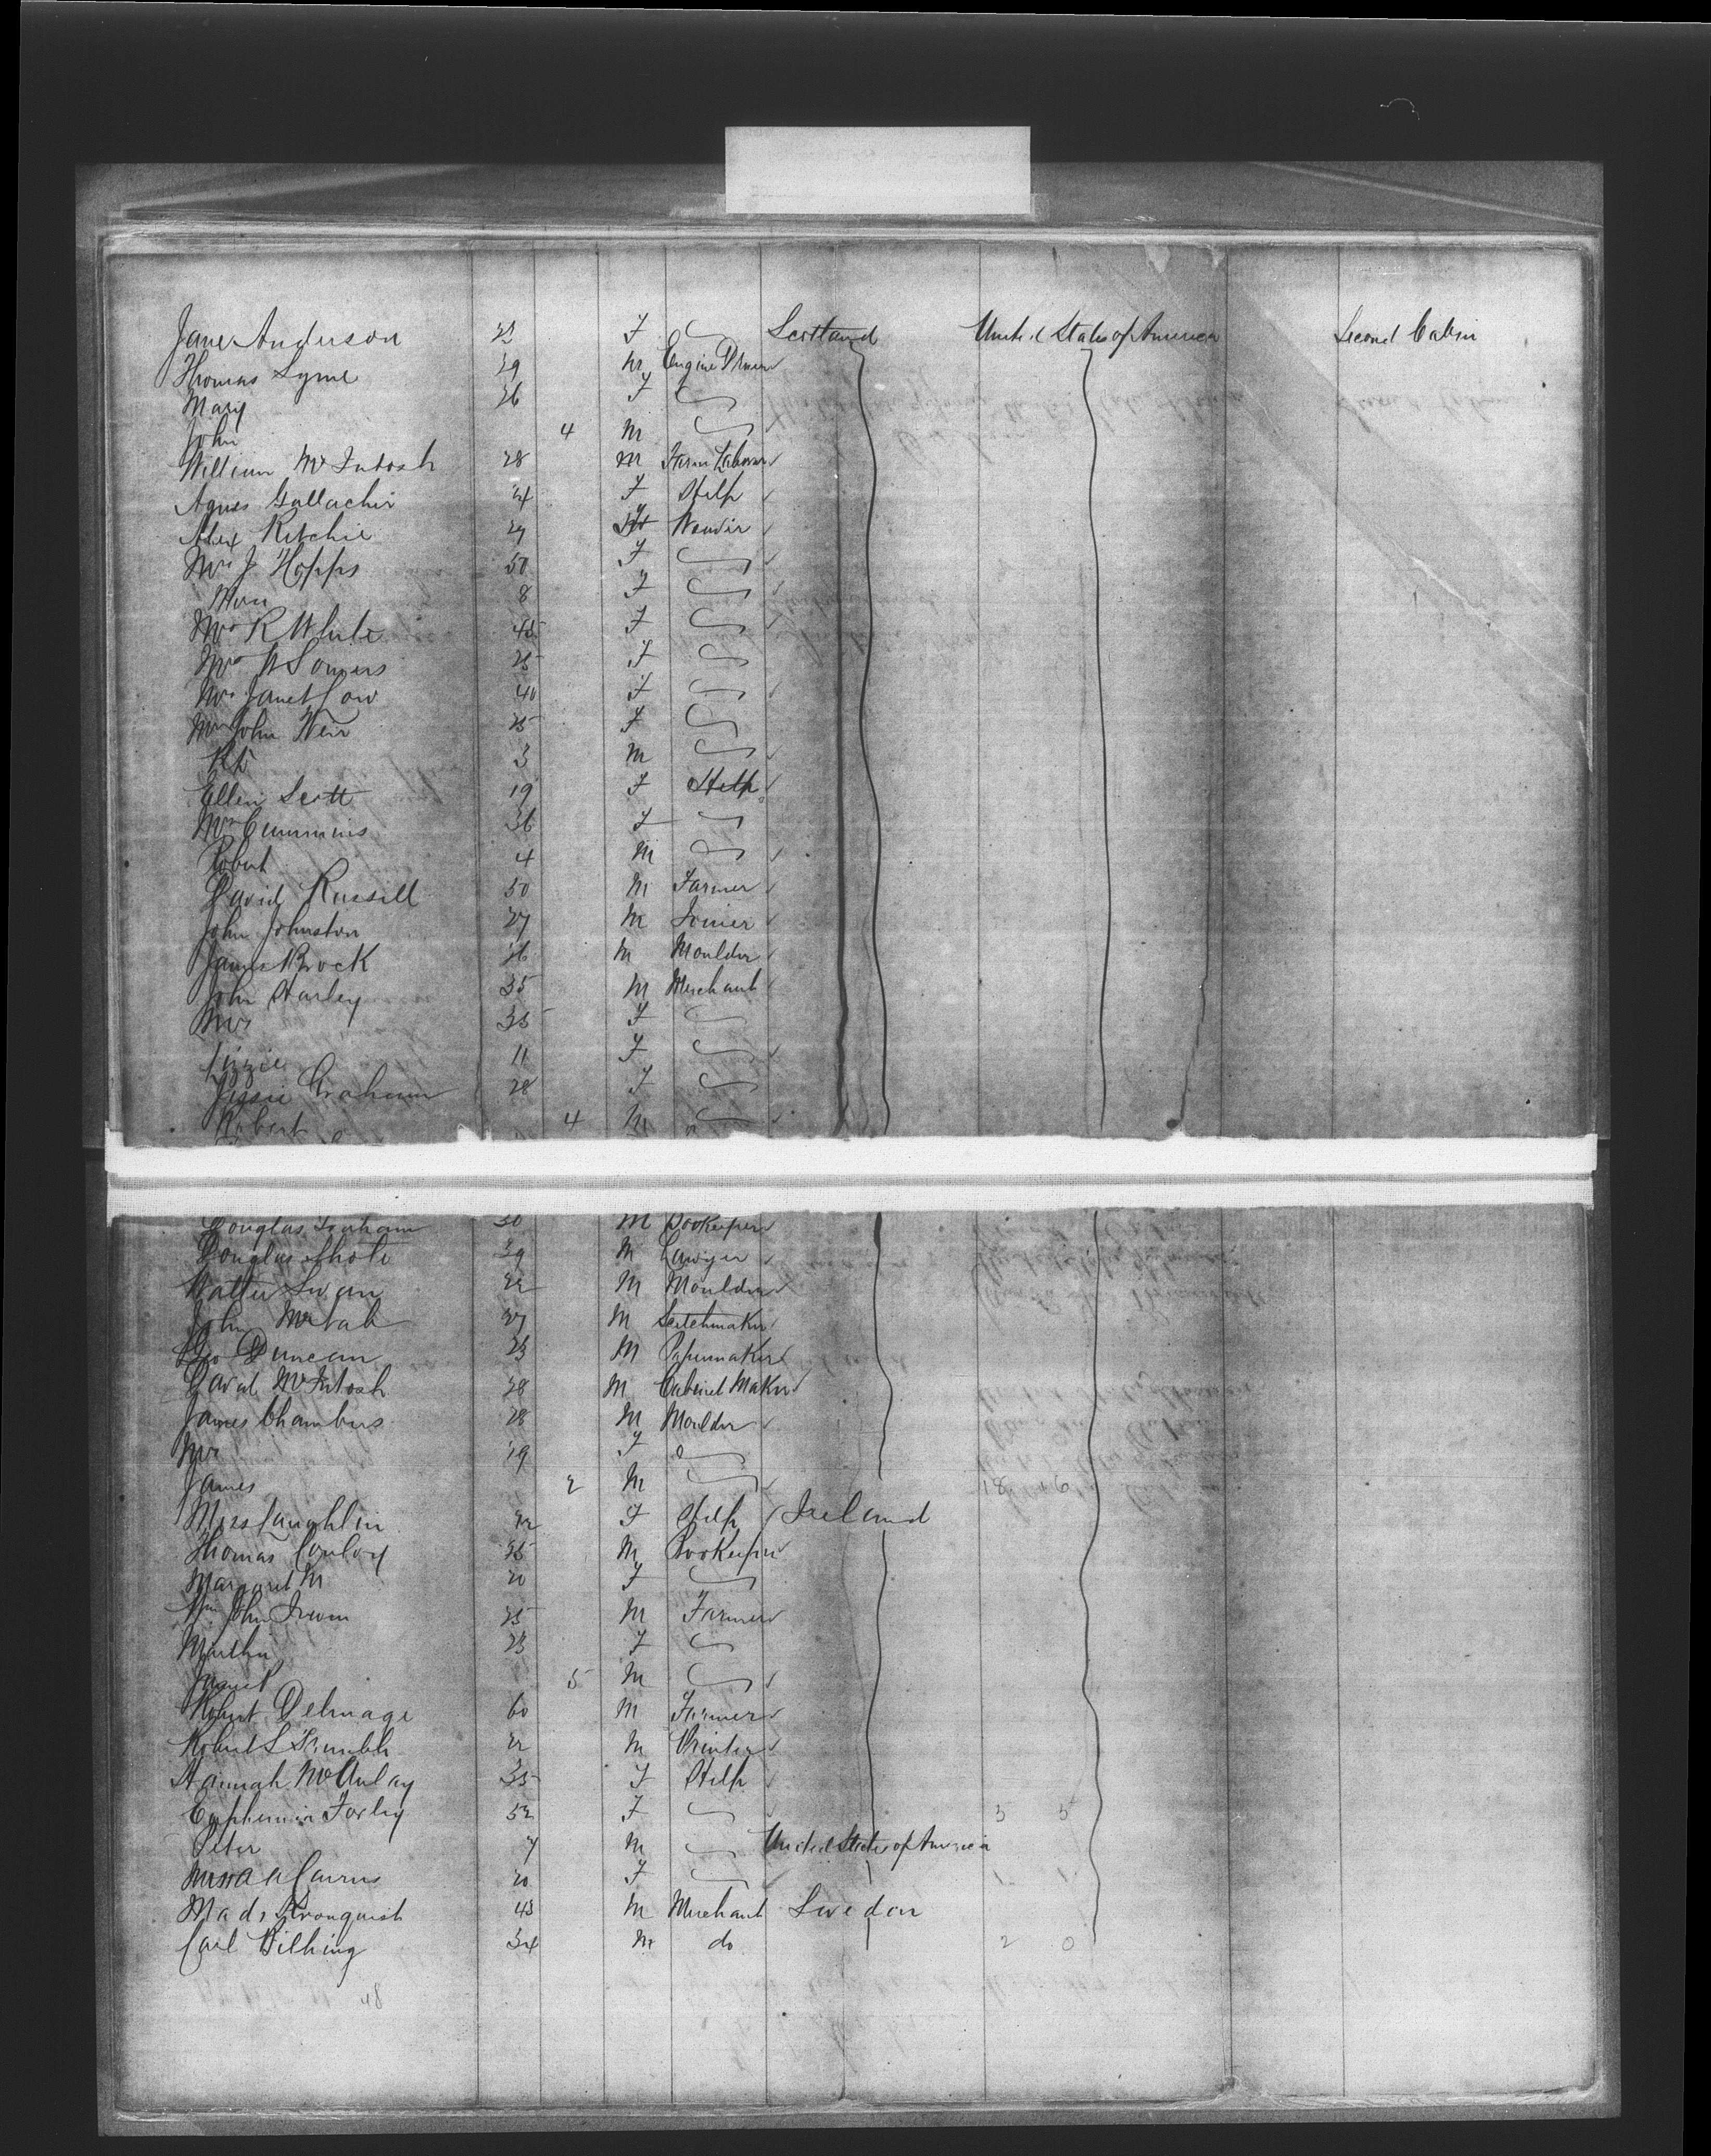 Jane Anderson 23 F Scotland United States of America Second Cabin
Thomas Syme 29 M Engine Driver
Mary 26 F
John 4 M
William McIntosh 28 M Farm Laborer
Agnes Gallacher 24 F Help
Alex Ritchie 29 Weaver
Mrs J Hopps 50 F
8 F
Mrs R White 45 F
Mrs Somers 25 F
Mrs Janet Low 40 F
Mrs John Weir 25 F
3 M
Ellen Scott 19 F Help
Mrs Cummins 36 F
Robert 4 M
David Russell 50 M Farmer
John Johnston 27 M Joiner
James Brock 26 M Moulder
John Harley 35 M Merchant
Mrs 35 F
Lizzie 11 F
Jessie Graham 28 F
Robert 4 M
Douglas Graham 30 M Bookeeper
Douglas 29 M Lawyer
Walter Swan 22 M Moulder
John McNab 27 M
Geo Duncan 23 M Papermaker
David McIntosh 28 M Cabinet Maker
James Chambers 28 M Moulder
Mrs 29 F
James 2 M
Miss Laughlin 22 F Help Ireland
Thomas Conloy 25 M Bookeeper
Margaret M 20 F
Wm John Irwin 25 M Farmer
Martha 23 F
5 M
Robert Delmage 60 M Farmer
Robert S Trimble 22 M Printer
Hannah McAulay 35 F Help
Euphemia Forley 52 F 5 5
Peter 7 M United States of America
Cairns 20 F
Mads Kronquist 43 M Merchant Sweden
Carl Wilhing 34 M do 2 0
48